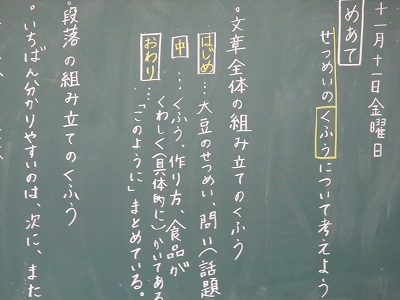 十一月十一日金曜日
めあて
せつめいのくふうについて考えよう
。文章全体の組み立てのくふう
はじめ…大豆のせつめい、問い、話題
中…くふう、作り方、食品が
くわしく(具体的に)かいてある
おわり…「このように」まとめている。
。段落の組み立てのくふう
。いちばん分かりやすいのは、次に、また